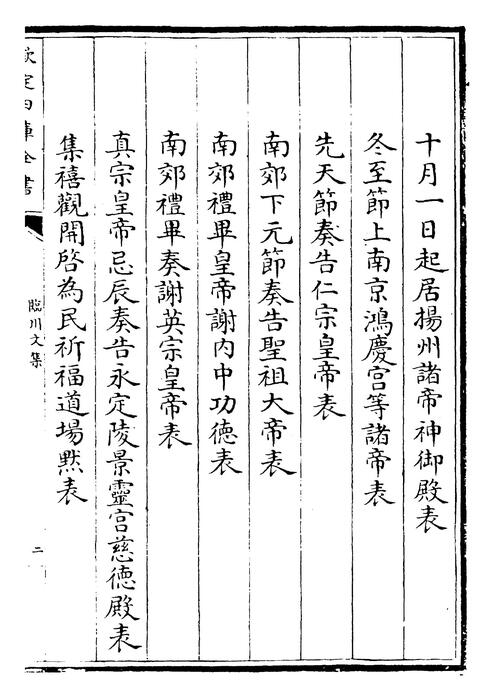 十月一日起居揚州諸帝神御殿表
冬至節上南京鴻慶宫等諸帝表
先天節奏告仁宗皇帝表
南郊下元節奏告聖祖大帝表
南郊禮畢皇帝謝内中功德表
南郊禮畢奏謝英宗皇帝表
真宗皇帝忌辰奏告永定陵景靈宫慈德殿表
集禧觀開啓為民祈福道場黙表
欽定四庫全書
臨川文集
二